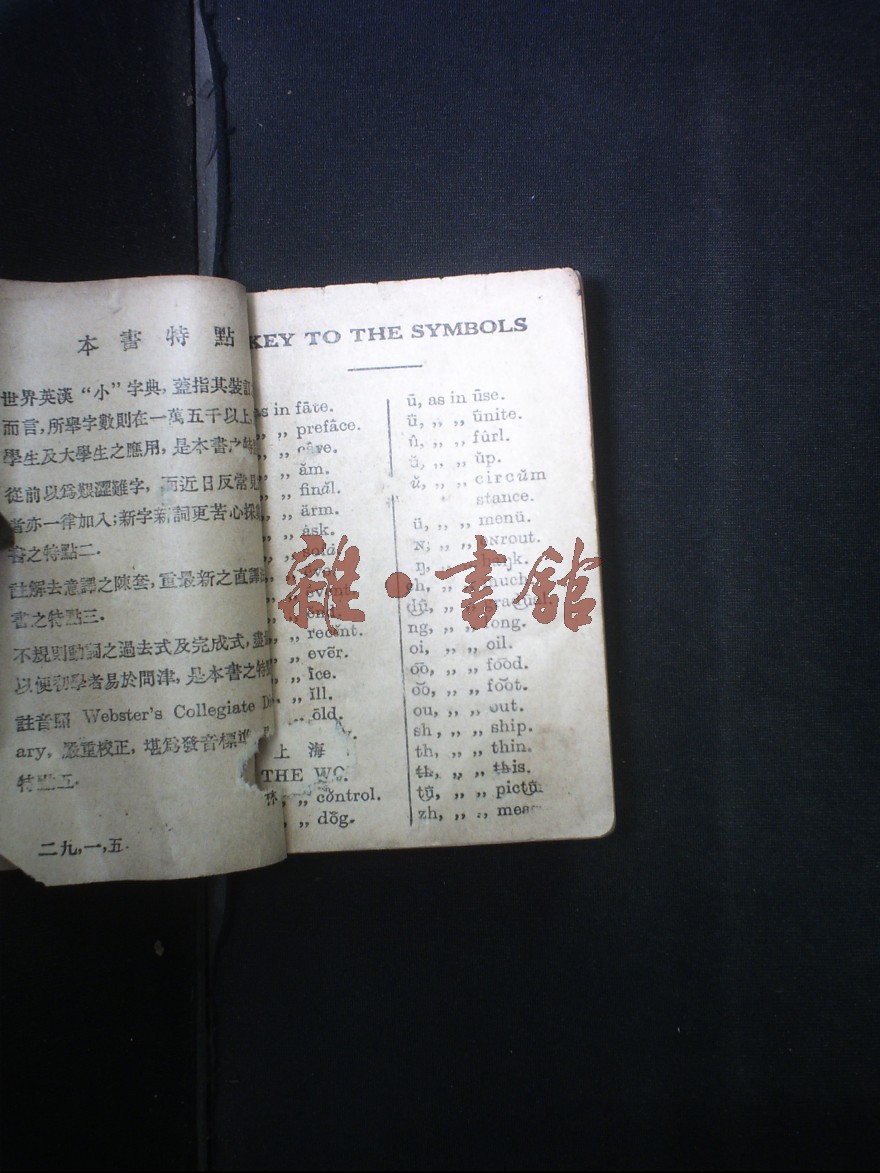 本書特點
世界英漢“小”字典,蓋指其裝
而言,所舉字數則在一萬五千以上
學生及大學生之應用,是本書之特
從前以爲艱澀難字,而近日反常見
者亦一律加入;新字新詞更苦心採
書之特點二.
註解去意譯之陳套,重最新之直譯
書之特點三.
不規則動詞之過去式及完成式,
以便初學者易於問津,是本書之特
註音照 Webster's Collegiate
ary, 嚴重校正,堪爲發音標準
特點五.
二九,一,五.
KEY TO THE SYMBOLS
as in fāte.
„ „ prefâce.
„ „ câre.
„ ăm.
„ fināl.
„ ärm.
„ ȧsk.
„ ēve.
„ ĕnd.
„ recĕnt.
„ evẽr.
„ īce.
„ ĭll.
„ ōld.
上海
THE
„ „ cŏntrol.
„ dŏg.
ū, as in ūse.
„ „ ûnite.
û, „ „ fûrl.
ŭ, „ „ ŭp.
ŭ, „ „ circŭm
stance.
ü, „ „ menü.
ch, „ „ much.
ng, „ „ song.
oi, „ „ oil.
o͞o, „ „ fo͞od.
o͝o, „ „ fo͝ot.
ou, „ „ out.
sh, „ „ ship.
th, „ „ thin.
th, „ „ this.
zh, „ „
雜·書館